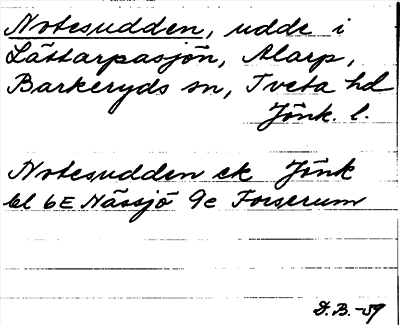 Notesudden, udde i
Lättarpasjön, Alarp,
Barkeryds sn, Tveta hd
Jönk. l.
Notesudden ek Jönk
bl 6E Nässjö 9c Forserum
D.B.-59